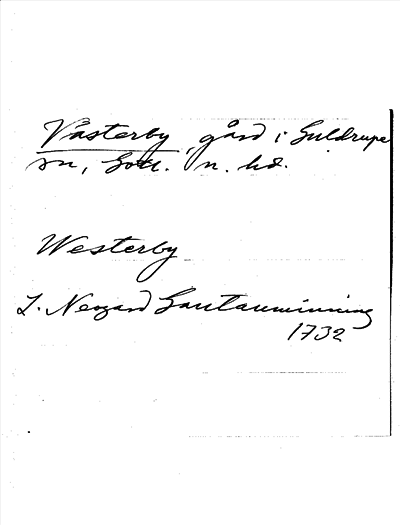 Västerby, gård i Guldrupe
sn, Gotl. n. hd.
Westerby
J. Neogard Gautauminning
1732